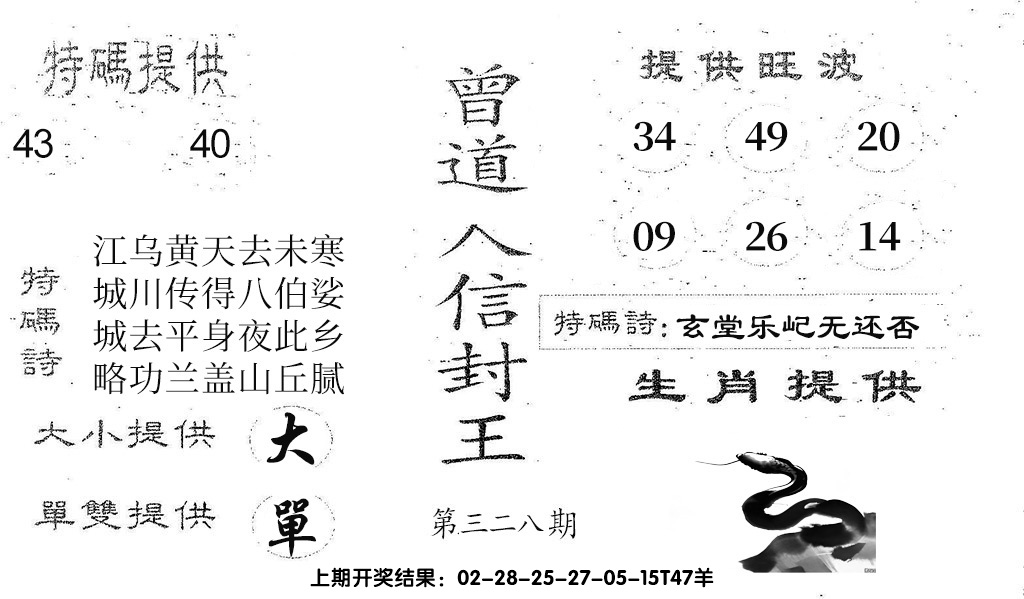 特碼提供
43 40
特碼詩
江乌黄天去未寒
城川传得八伯娑
城去平身夜此乡
略功兰盖山丘腻
大小提供 大
單雙提供 單
曾道人信封王
第三二八期
提供旺波
34 49 20
09 26 14
特碼詩:玄堂乐屺无还否
生肖提供
上期开奖结果：02-28-25-27-05-15T47羊